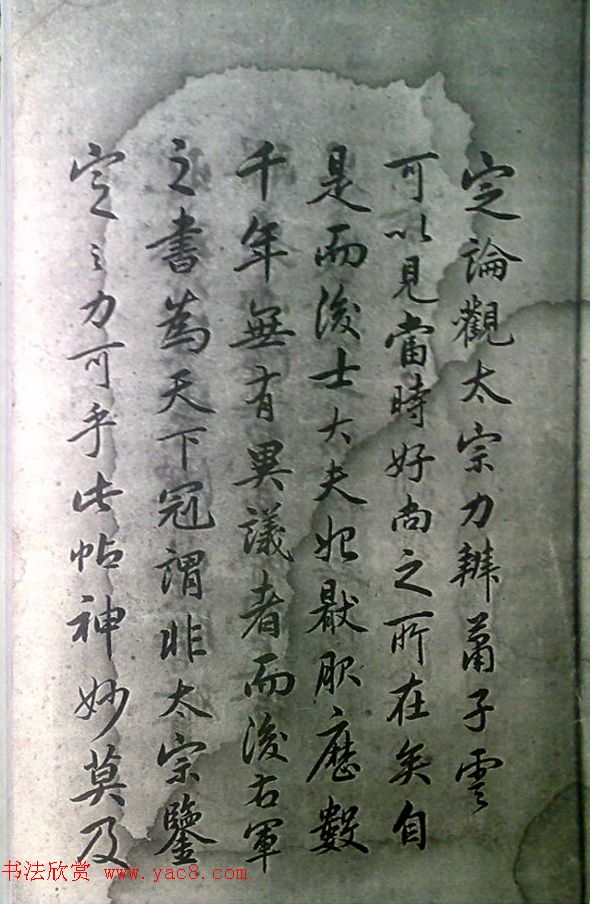 定論觀太宗力辨蕭子雲
可以見當時好尚之所在矣自
是而後士大夫始厭服歷數
千年無有異議者而後右軍
之書為天下冠謂非太宗鑒
定之力可乎此帖神妙莫及
书法欣赏 www.yac8.com